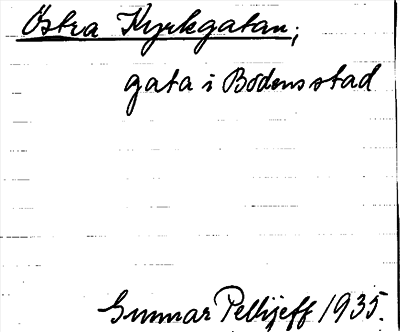 Östra Kyrkgatan;
gata i Bodens stad
Gunnar Pellijeff 1935.